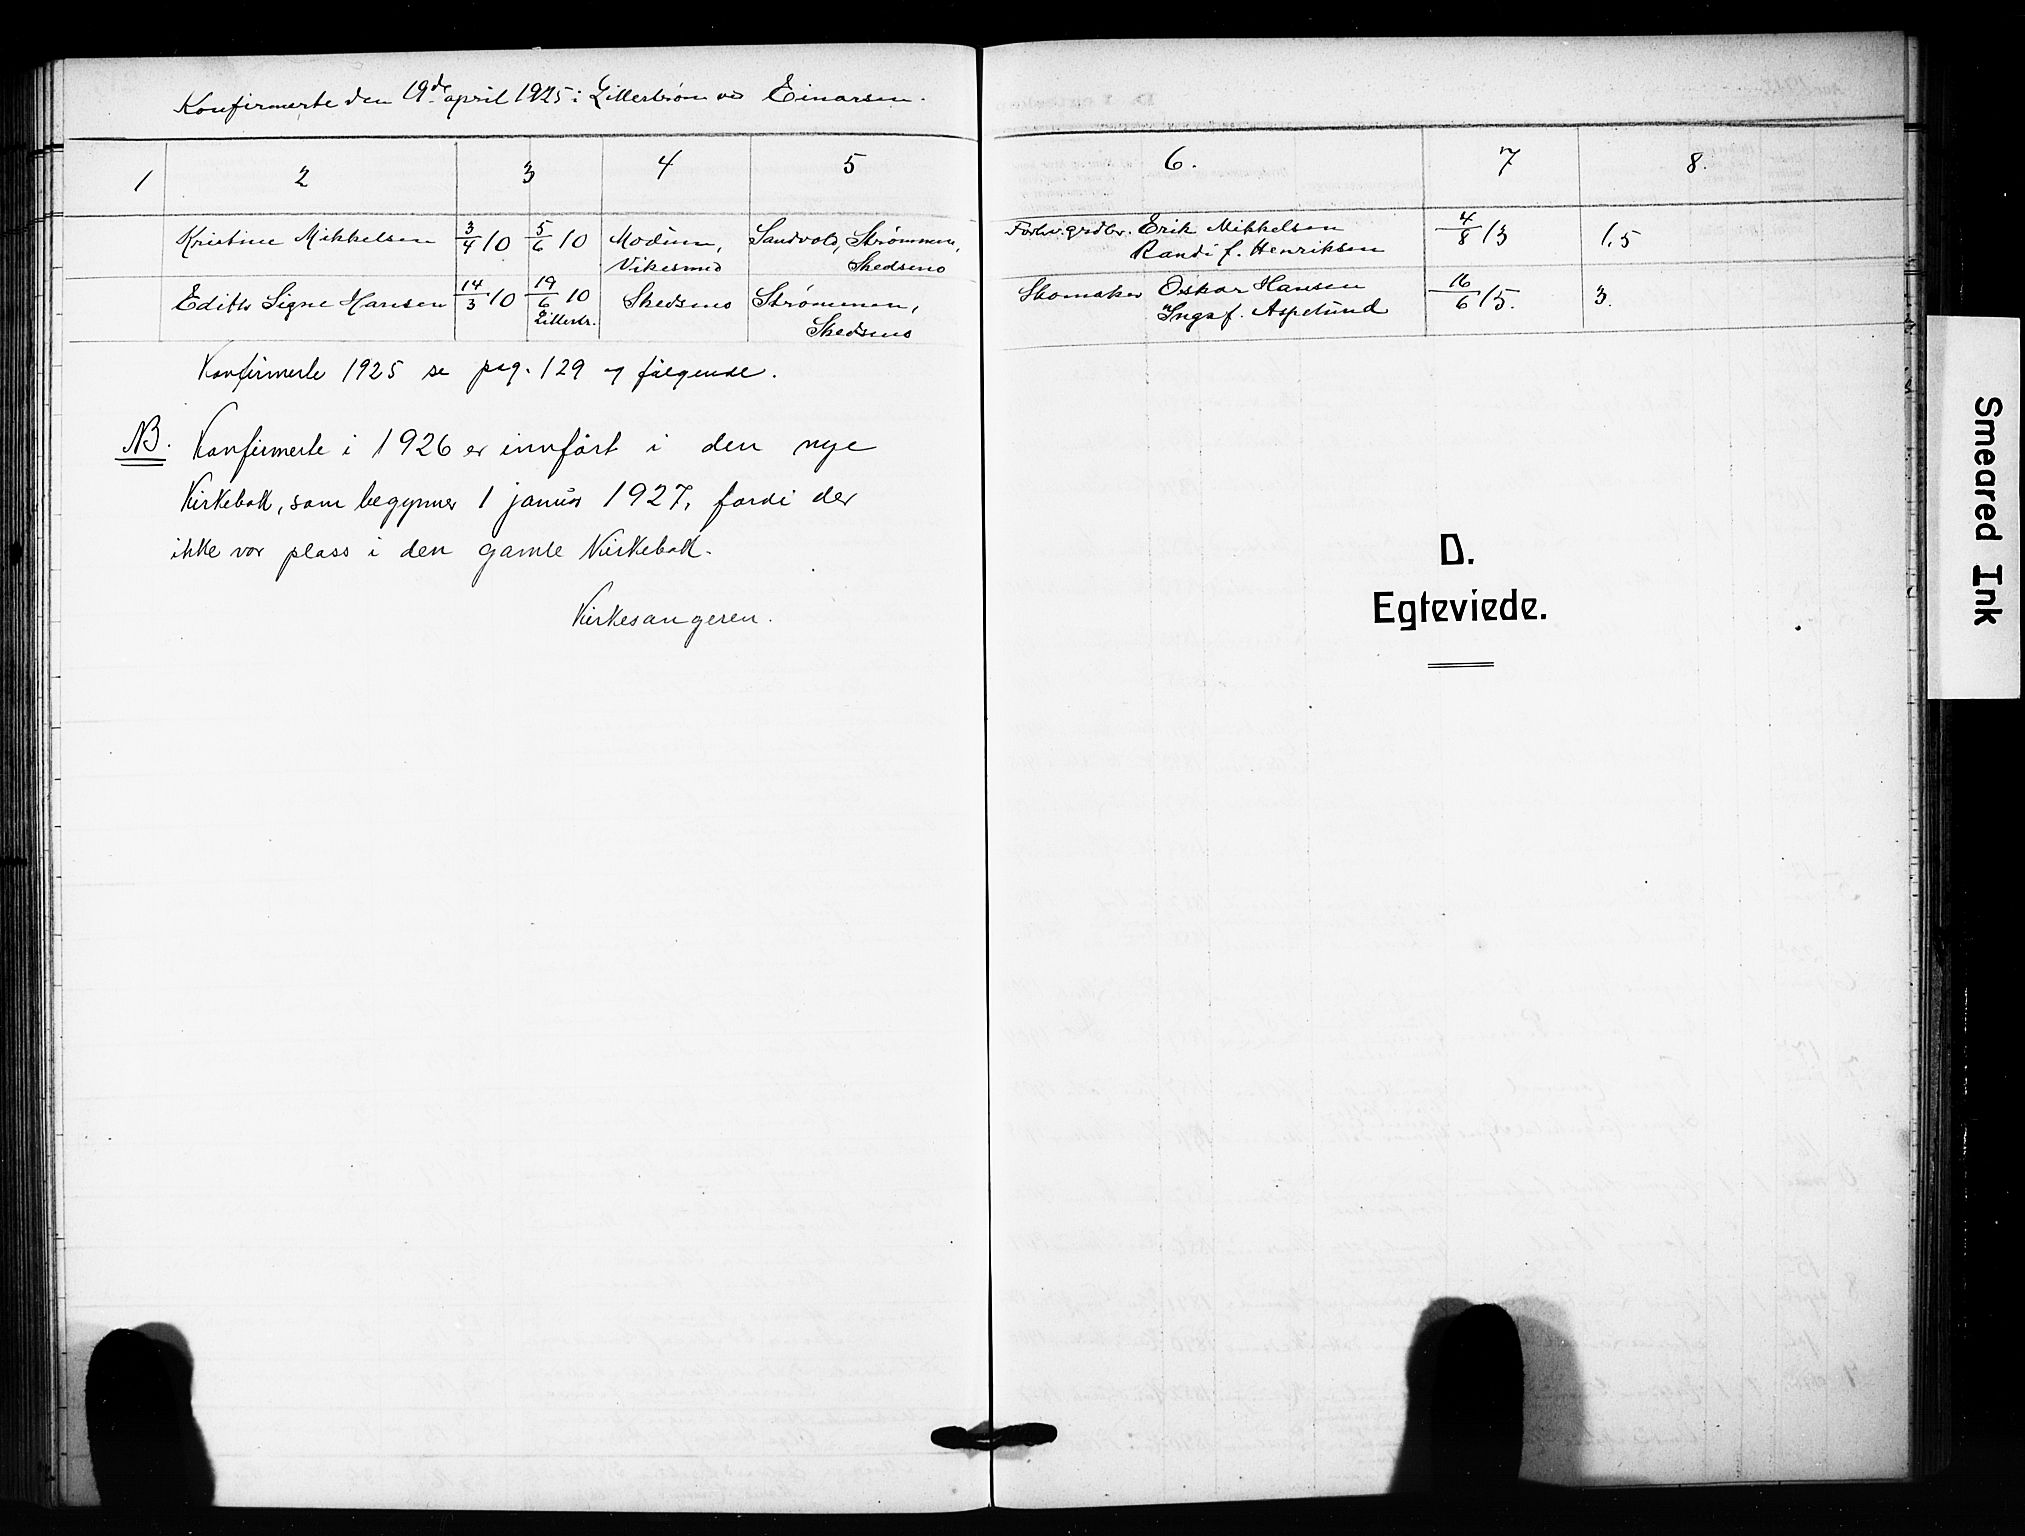 Konfirmerte den 19de april 1925 i Lillestrøm ved Einarsen.
1 2 3 4 5
Kristine Mikkelsen 3/4 10 5/6 10 Modum, Sandvold, Strømmen,
Vikesund Skedsmo
Edith Signe Hansen 14/3 10 19/6 10 Skedsmo Strømmen,
Lillestr. Skedsmo
Konfirmerte 1925 se pag. 129 og følgende.
NB. Konfirmerte i 1926 er innført i den nye
Kirkebok, som begynner 1 januar 1927, fordi der
ikke var plass i den gamle Kirkebok.
Kirkesangeren.
6. 7 8.
Erik Mikkelsen 4/8 13 1,5
Randi f. Henriksen
Skomaker Oskar Hansen 16/6 15. 3.
Inga f. Aspelund
D.
Egteviede.
Smeared Ink